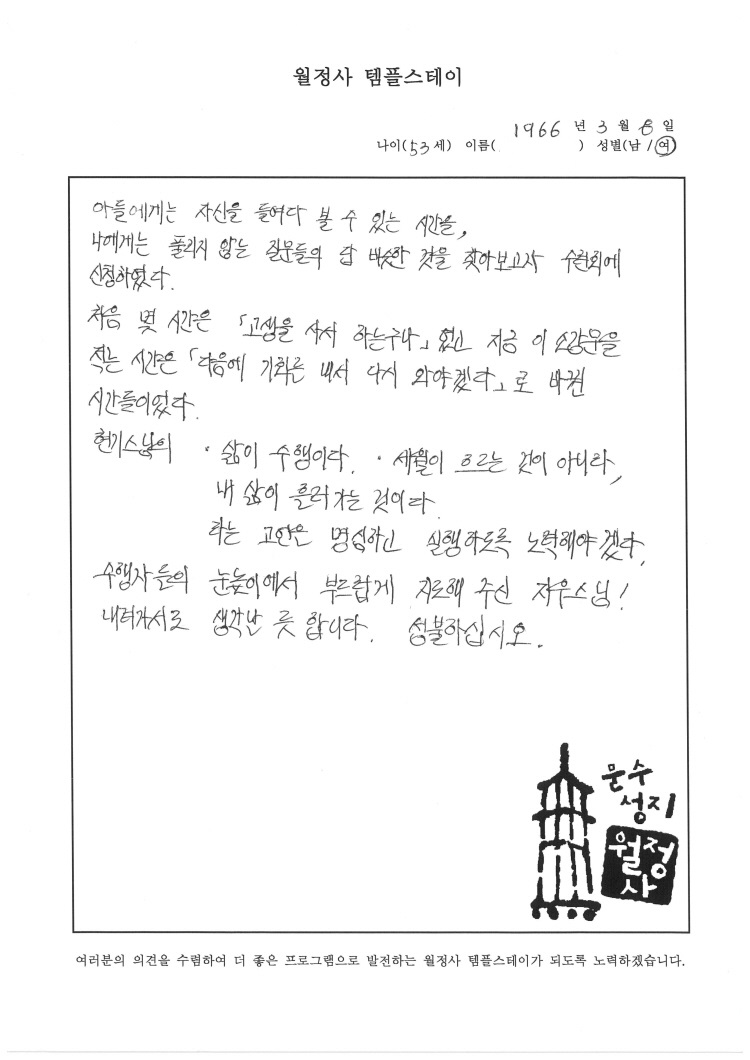 월정사 템플스테이
1966 년 3 월 8 일
나이(53세) 이름( ) 성별(남/여)
아들에게는 자신을 들여다 볼 수 있는 시간을,
나에게는 풀리지 않는 질문들의 답 비슷한 것을 찾아보고자 수련회에
신청하였다.
처음 몇 시간은 「고생을 사서 하는구나」 였고 지금 이 소감문을
적는 시간은 「다음에 기회를 내서 다시 와야겠다」로 바뀐
시간들이었다.
현기스님의 · 삶이 수행이다. · 세월이 흐르는 것이 아니라,
내 삶이 흘러가는 것이다.
라는 고안은 명심하고 실행하도록 노력해야겠다.
수행자들의 눈높이에서 부르럽게 지도해 주신 자우스님!
내려가서도 생각난 듯 합니다. 성불하십시오.
문수
성지
월정
사
여러분의 의견을 수렴하여 더 좋은 프로그램으로 발전하는 월정사 템플스테이가 되도록 노력하겠습니다.